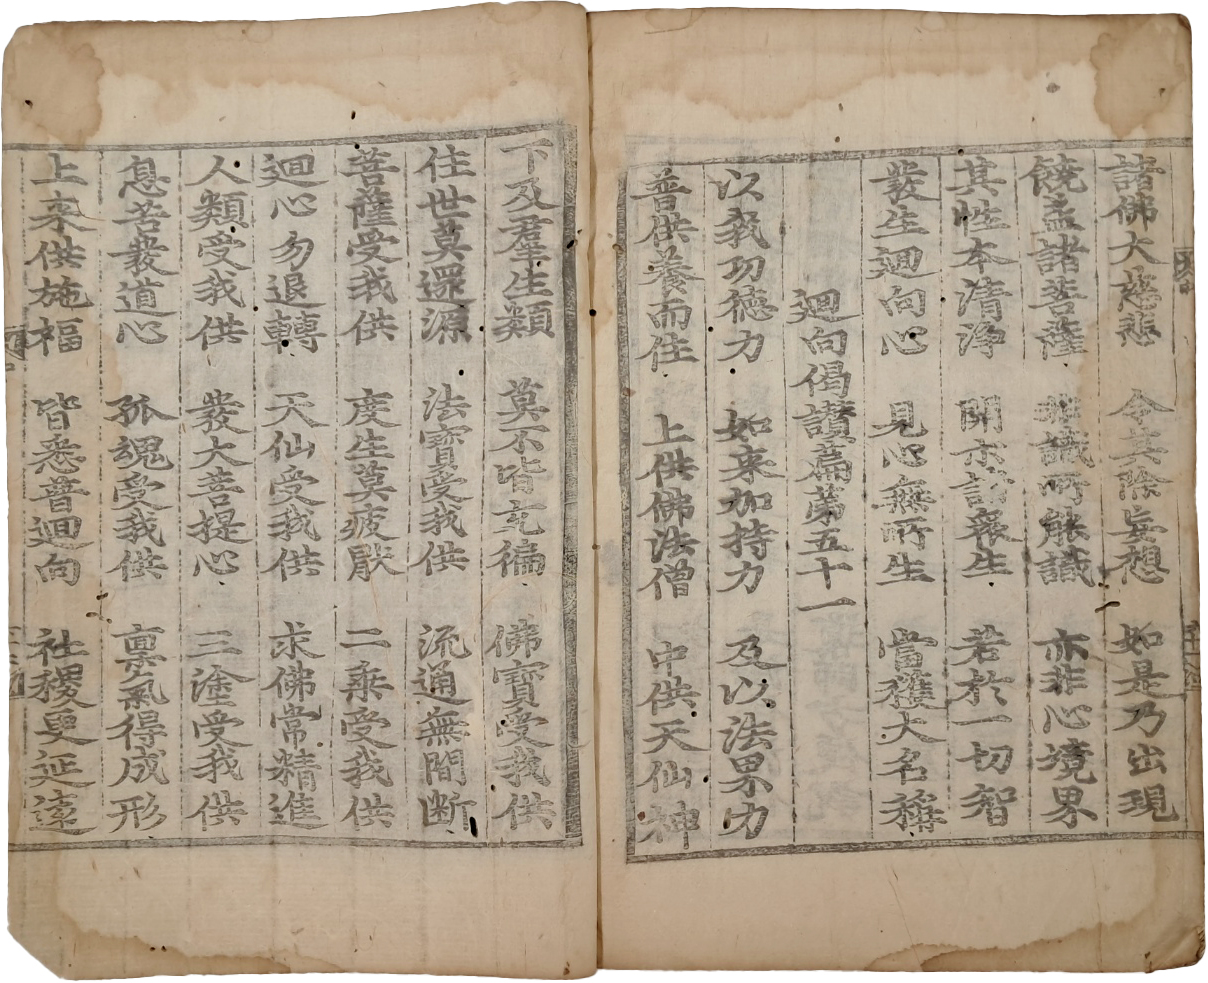 諸佛大慈悲 令其除妄想 如是乃出現
饒益諸菩薩 非識所能識 亦非心境界
其性本清淨 開示諸衆生 若於一切智
發生廻向心 見心無所生 當獲大名稱
廻向偈讃篇第五十一
以我功德力 如来加持力 及以法界力
普供養而住 上供佛法僧 中供天仙神
下及羣生類 莫不皆充徧 佛寶受我供
住世莫還源 法寶受我供 流通無間断
菩薩受我供 度生莫疲厭 二乘受我供
廻心勿退轉 天仙受我供 求佛常精進
人類受我供 發大菩提心 三塗受我供
息苦發道心 孤魂受我供 禀氣得成形
上来供施福 皆悉普廻向 社稷更延遠